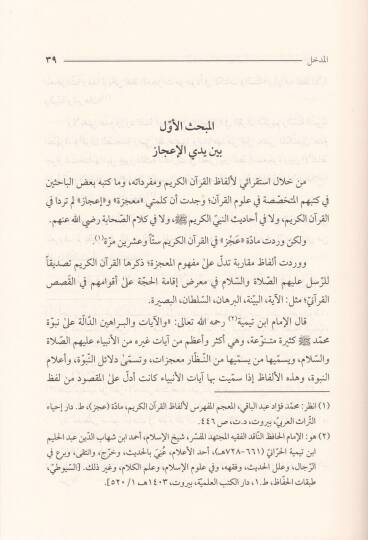 المدخل ٣٩
المبحث الأوّل
بين يدي الإعجاز
من خلال استقرائي لألفاظ القرآن الكريم ومفرداته، وما كتبه بعض الباحثين
في كتبهم المتخصّصة في علوم القرآن؛ وجدت أن كلمتي «معجزة» و«إعجاز» لم تردا في
القرآن الكريم، ولا في أحاديث النبيّ الكريم ﷺ، ولا في كلام الصّحابة رضي الله عنهم.
ولكن وردت مادّة «عَجَز» في القرآن الكريم ستّاً وعشرين مرّة(١).
ووردت ألفاظ مقاربة تدلّ علىٰ مفهوم المعجزة؛ ذكرها القرآن الكريم تصديقاً
للرّسل عليهم الصّلاة والسّلام في معرض إقامة الحجّة علىٰ أقوامهم في القَصص
القرآنيّ؛ مثل: الآية، البيّنة، البرهان، السّلطان، البصيرة.
قال الإمام ابن تيمية(٢) رحمه الله تعالى: «والآيات والبراهين الدّالّة علىٰ نبوّة
محمّد ﷺ كثيرة متنوّعة، وهي أكثر وأعظم من آيات غيره من الأنبياء عليهم الصّلاة
والسّلام، ويسمّيها من يسمّيها من النُّظّار معجزات، وتسمّىٰ دلائل النّبوّة، وأعلام
النبوة، وهذه الألفاظ إذا سمّيت بها آيات الأنبياء كانت أدلّ علىٰ المقصود من لفظ
(١) انظر: محمّد فؤاد عبد الباقي، المعجم المفهرس لألفاظ القرآن الكريم، مادّة (عجز)، ط. دار إحياء
التّراث العربيّ، بيروت، د.ت، ص ٤٤٦.
(٢) هو: الإمام الحافظ النّاقد الفقيه المجتهد المفسّر، شيخ الإسلام، أحمد ابن شهاب الدّين عبد الحليم
ابن تيمية الحرّانيّ (٦٦١-٧٢٨هـ)، أحد الأعلام، عُنيَ بالحديث، وخرّج، وانتقى، وبرع في
الرّجال، وعلل الحديث، وفقهه، وفي علوم الإسلام، وعلم الكلام، وغير ذلك. [السّيوطيّ،
طبقات الحفّاظ، ط.١، دار الكتب العلميّة، بيروت، ١٤٠٣هـ، ١/ ٥٢٠].